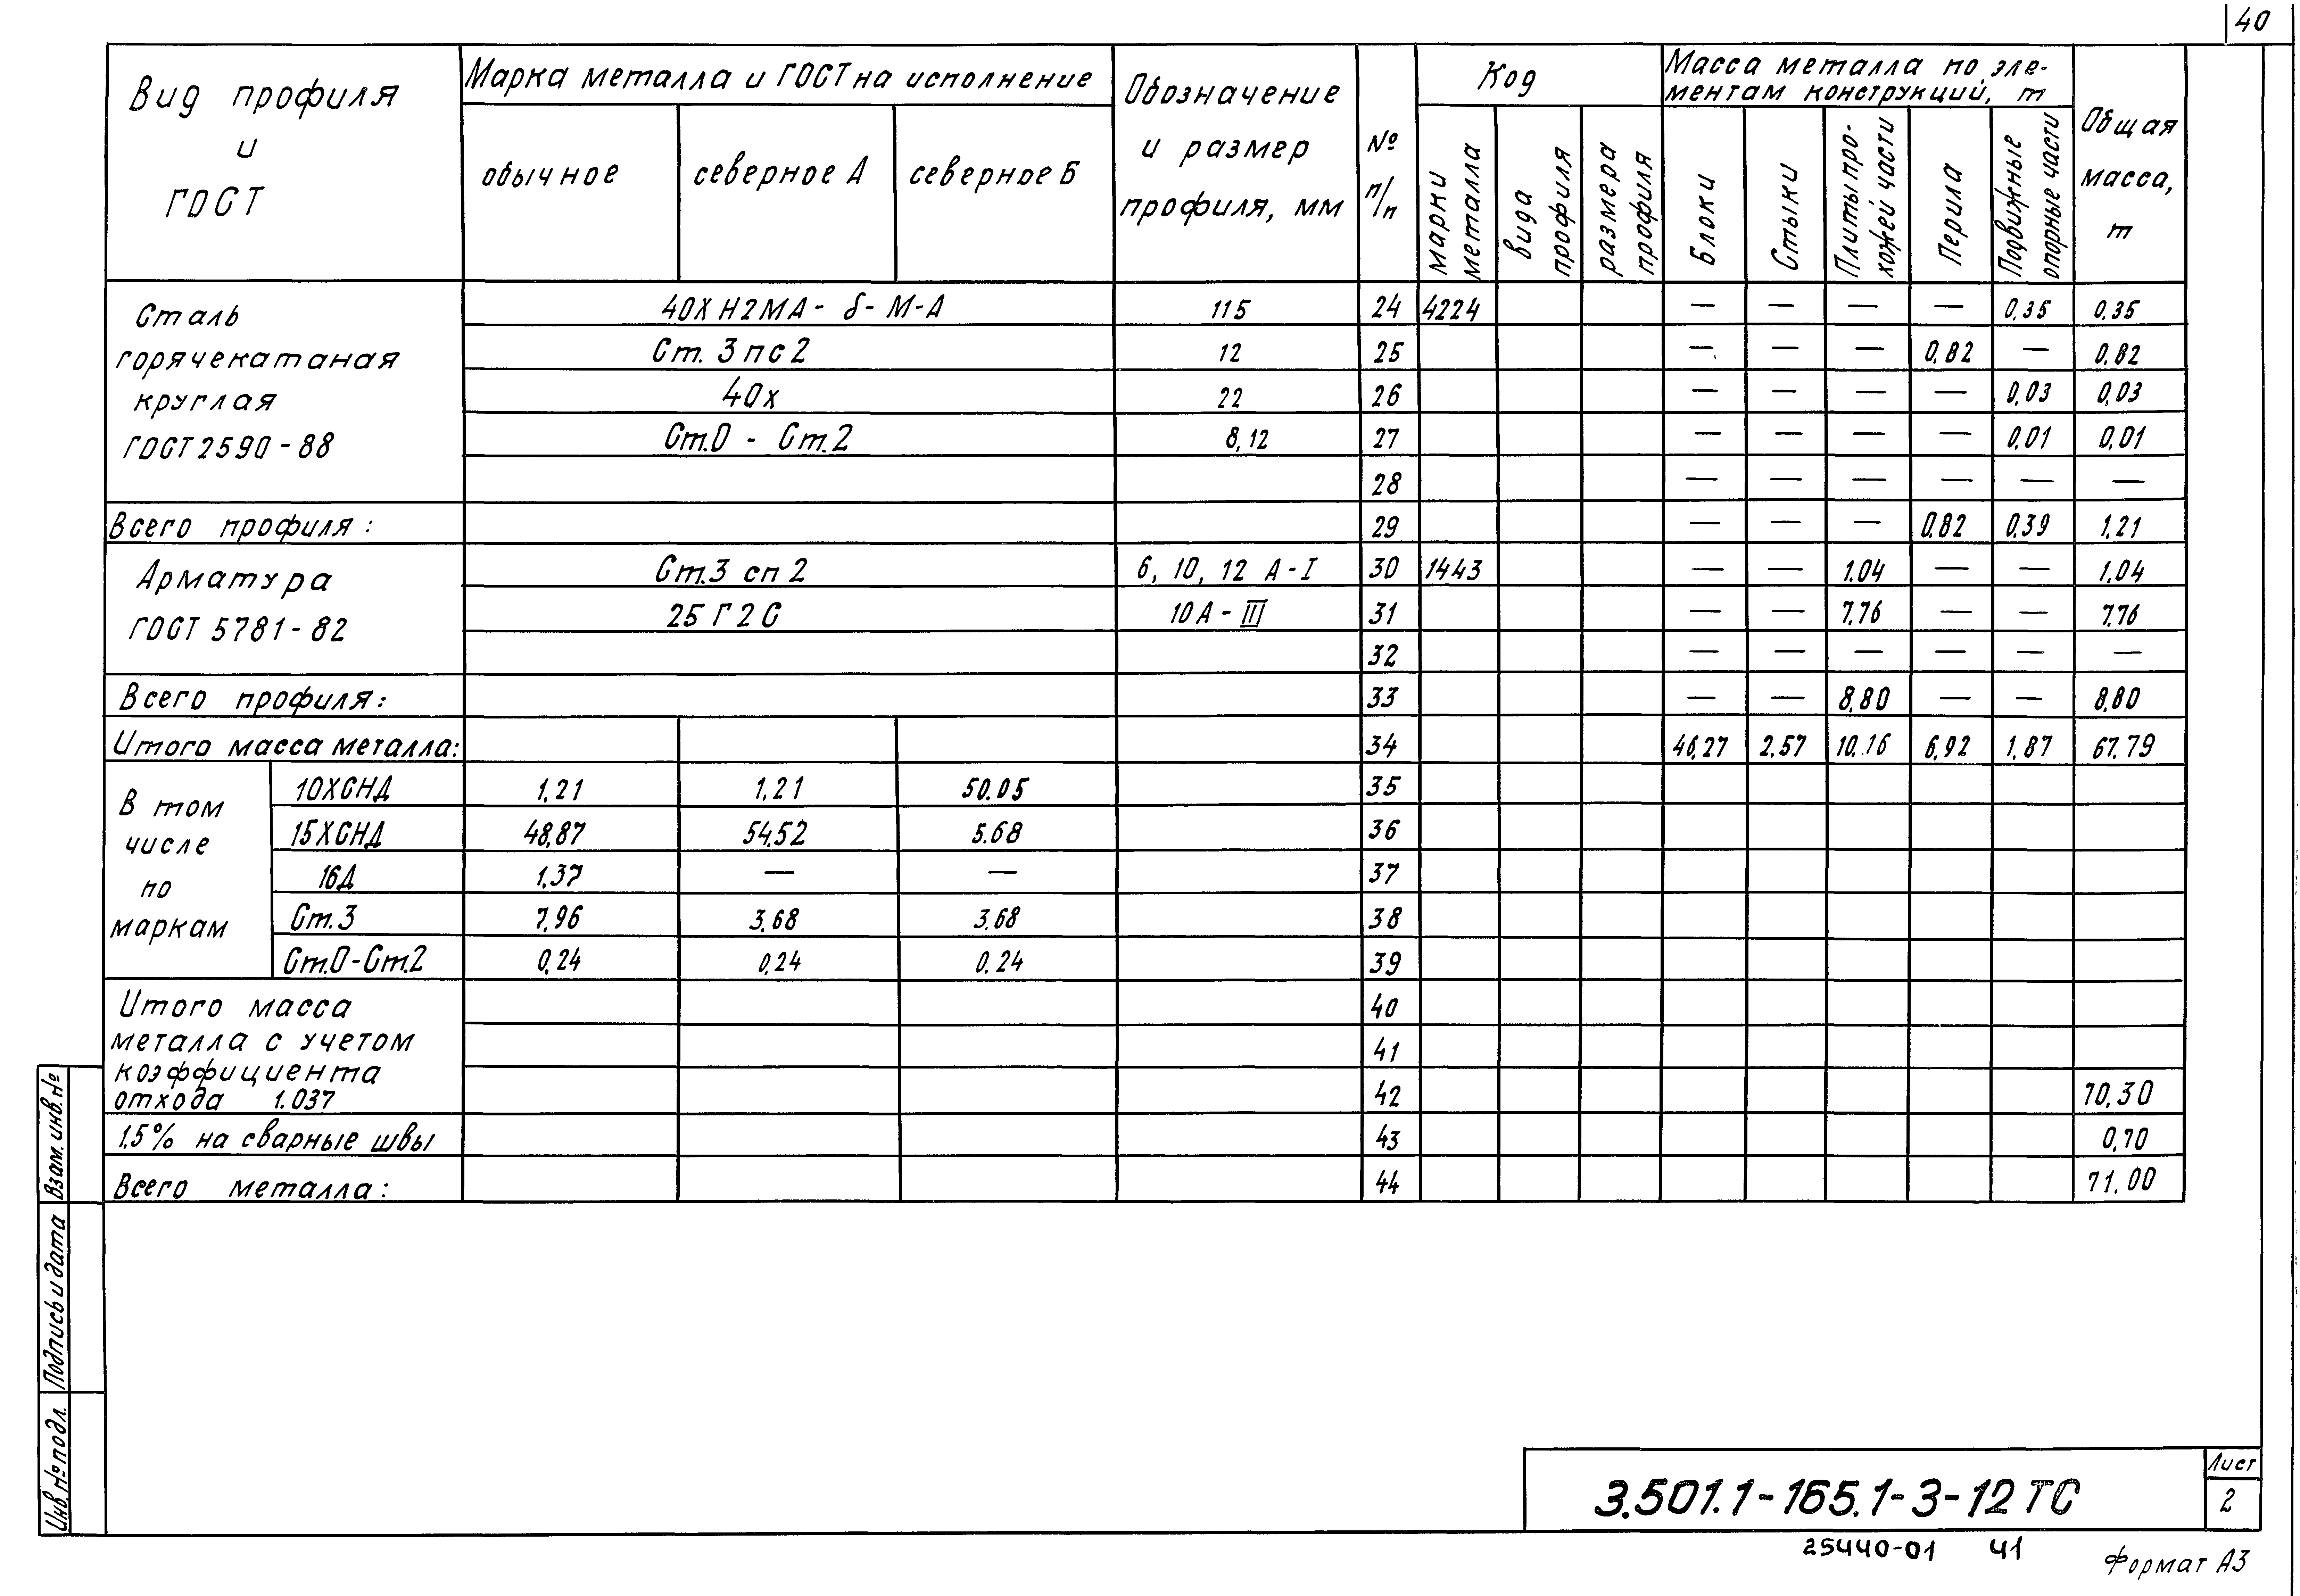 40
Вид профиля и ГОСТ | Марка металла и ГОСТ на исполнение | Обозначение и размер профиля, мм | № п/п | Код | Масса металла по элементам конструкций, т | Общая масса, т
обычное | северное А | северное Б | марки металла | вида профиля | размера профиля | Блоки | Стыки | Плиты прохожей части | Перила | Подвижные опорные части
Сталь | 40ХН2МА- δ- М-А | 115 | 24 | 4224 | — | — | — | — | 0,35 | 0,35
горячекатаная | Ст. 3 пс 2 | 12 | 25 | — | — | — | 0,82 | — | 0,82
круглая | 40х | 22 | 26 | — | — | — | — | 0,03 | 0,03
ГОСТ 2590-88 | Ст.0 - Ст.2 | 8,12 | 27 | — | — | — | — | 0,01 | 0,01
28 | — | — | — | — | — | —
Всего профиля: | 29 | — | — | — | 0,82 | 0,39 | 1,21
Арматура | Ст.3 сп 2 | 6, 10, 12 А-I | 30 | 1443 | — | — | 1.04 | — | — | 1,04
ГОСТ 5781-82 | 25 Г 2 С | 10 А - III | 31 | — | — | 7.76 | — | — | 7,76
32 | — | — | — | — | — | —
Всего профиля: | 33 | — | — | 8,80 | — | — | 8,80
Итого масса металла: | 34 | 46,27 | 2,57 | 10,16 | 6,92 | 1,87 | 67.79
В том числе по маркам
10ХСНД | 1,21 | 1,21 | 50.05 | 35
15ХСНД | 48,87 | 54,52 | 5.68 | 36
16Д | 1,37 | — | — | 37
Ст.3 | 7,96 | 3,68 | 3,68 | 38
Ст.0-Ст.2 | 0,24 | 0,24 | 0,24 | 39
Итого масса | 40
металла с учетом | 41
коэффициента
отхода 1.037 | 42 | 70,30
1.5% на сварные швы | 43 | 0,70
Всего металла: | 44 | 71,00
Взам. инв. №
Подпись и дата
Инв. № подл.
3.501.1-165.1-3-12 ТС
Лист
2
25440-01 41
Формат А3